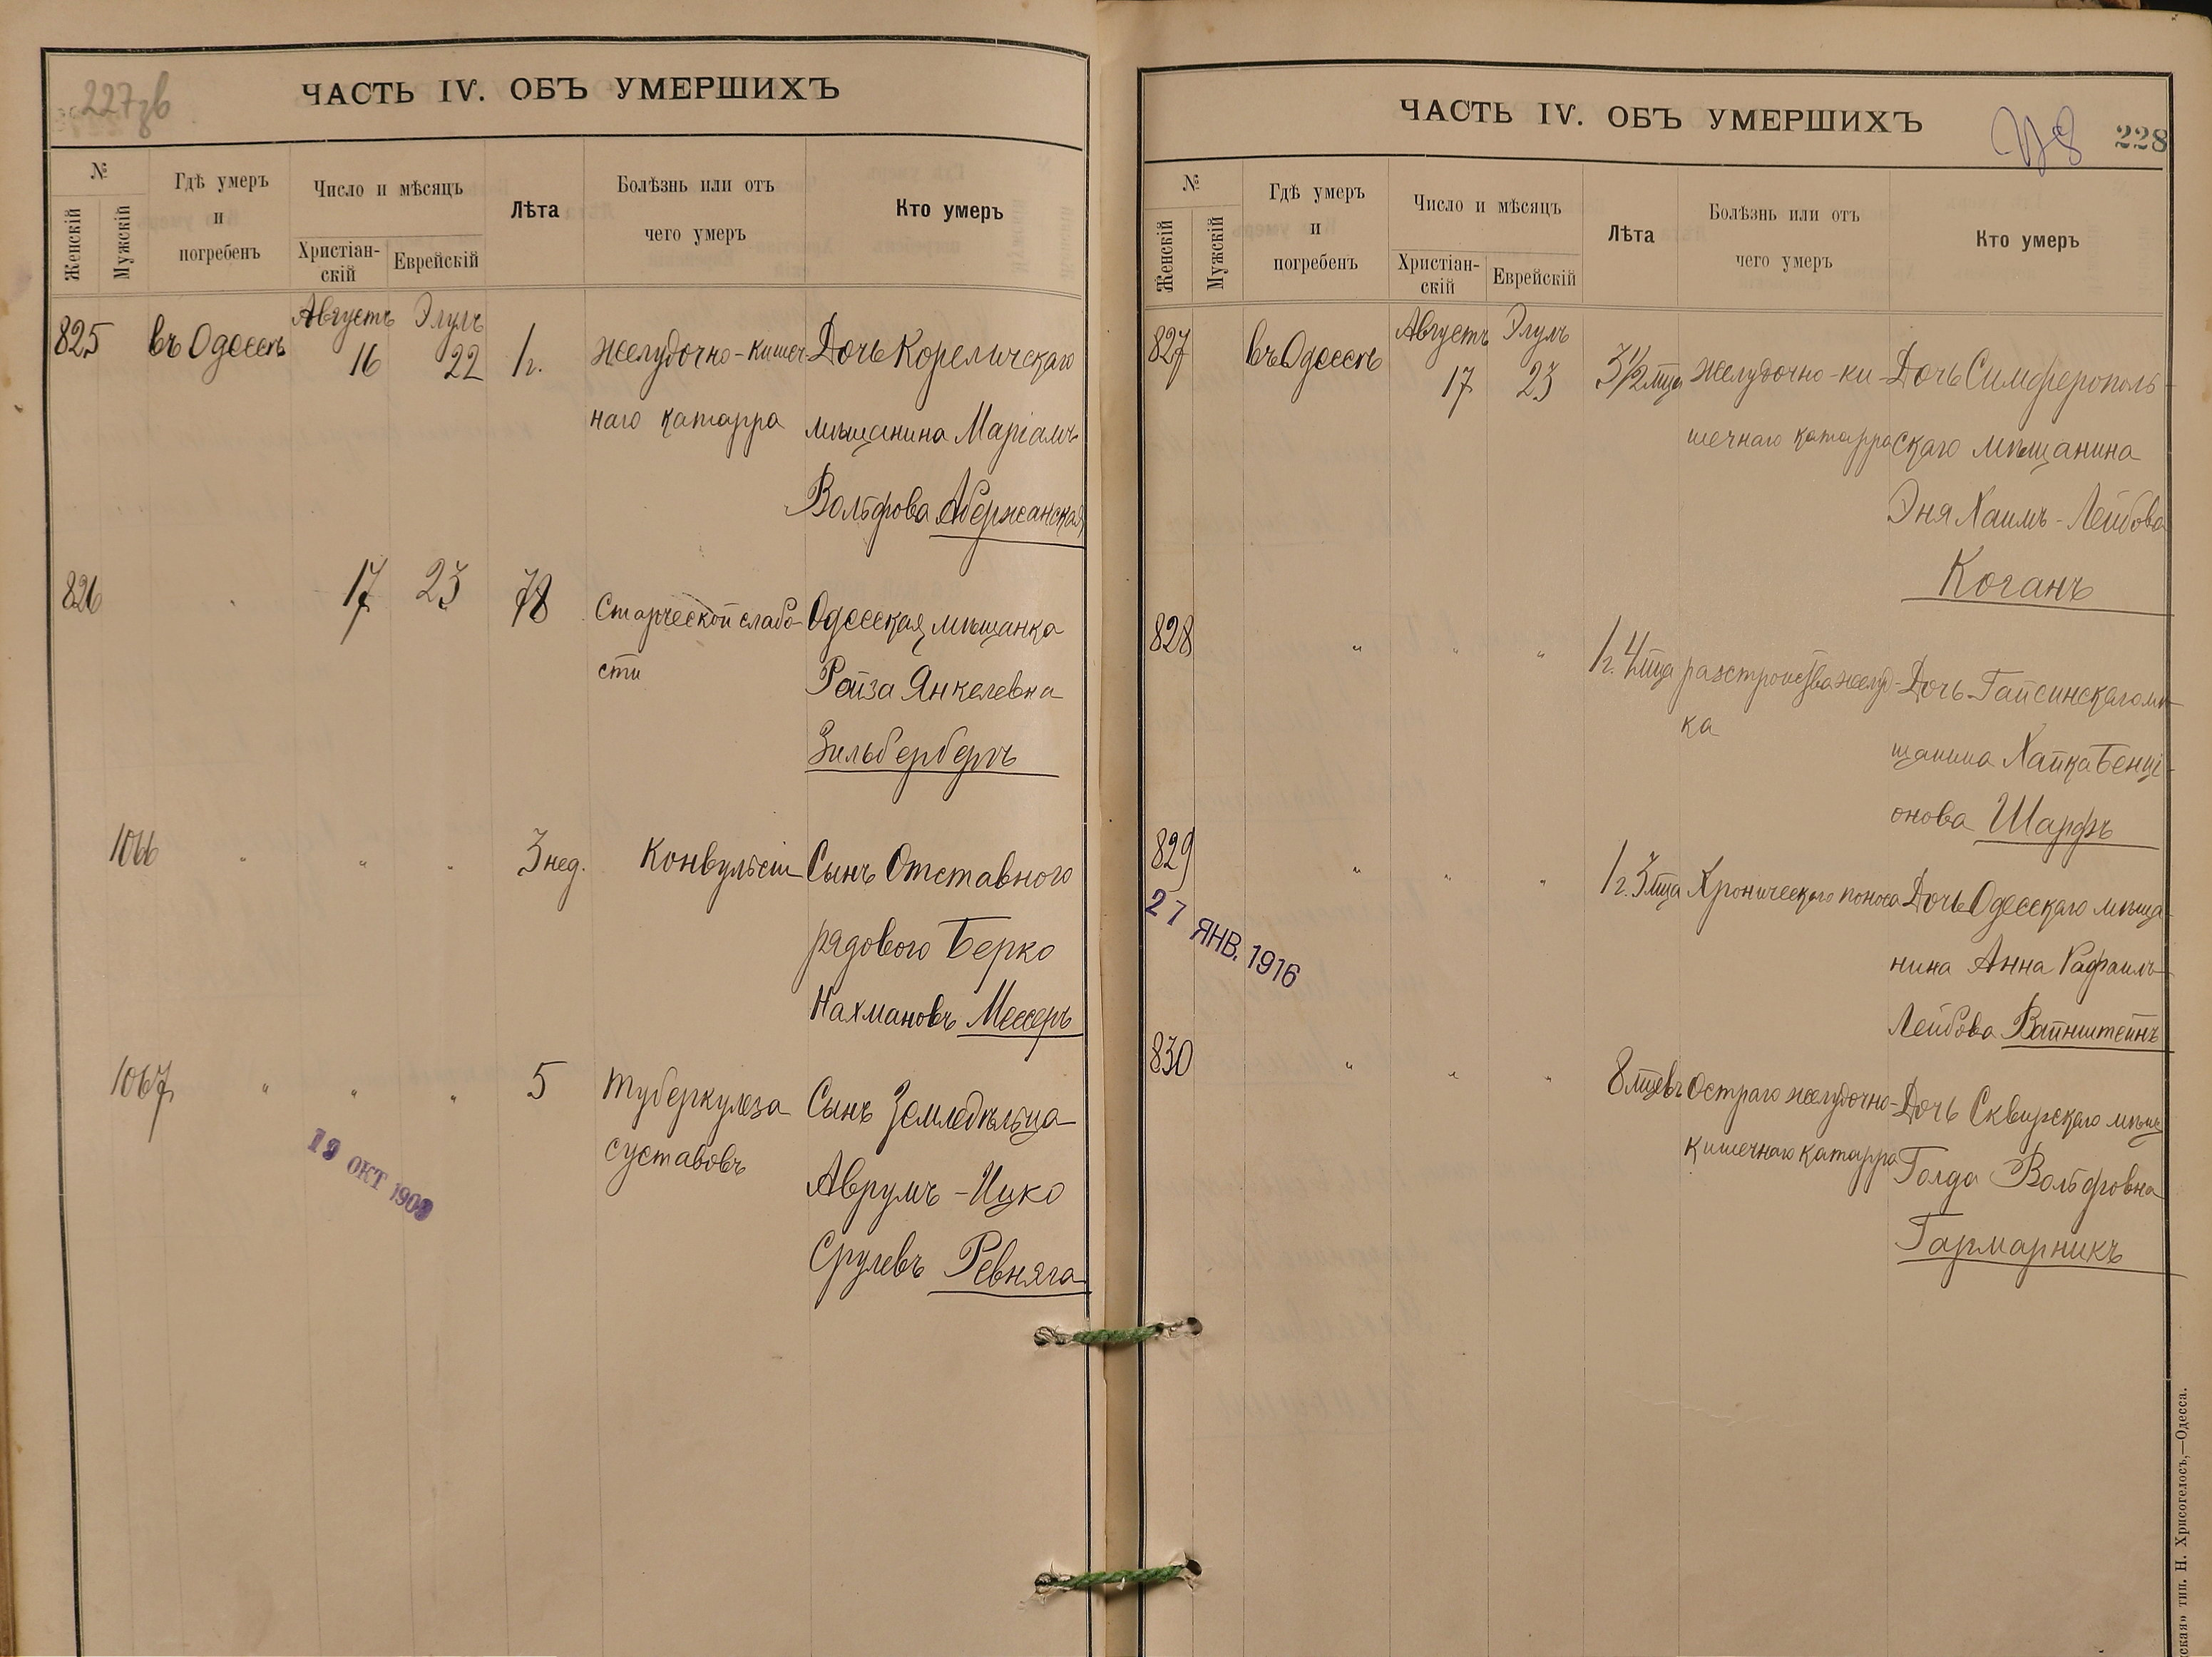 227об
ЧАСТЬ IV. ОБЪ УМЕРШИХЪ
№
Женскій
Мужскій
Гдѣ умеръ
и
погребенъ
Число и мѣсяцъ
Христіан-
скій
Еврейскій
Лѣта
Болѣзнь или отъ
чего умеръ
Кто умеръ
Августъ Элулъ
825 въ Одессѣ 16 22 1 г. желудочно-кишеч- Дочь Кореличскаго
наго катарра мѣщанина Маріамъ
Вольфова Абержанская
826 17 23 78 Старческой слабо- Одесская мѣщанка
сти Ройза Янкелевна
Зильбербергъ
1066 " " " 3 нед. Конвульсіи Сынъ Отставного
рядового Берко
Нахмановъ Мессеръ
1067 " " " 5 туберкулеза Сынъ Земледѣльца
суставовъ Аврумъ-Ицко
Срулевъ Ревняга
19 ОКТ 1909
ЧАСТЬ IV. ОБЪ УМЕРШИХЪ
228
№
Женскій
Мужскій
Гдѣ умеръ
и
погребенъ
Число и мѣсяцъ
Христіан-
скій
Еврейскій
Лѣта
Болѣзнь или отъ
чего умеръ
Кто умеръ
Августъ Элулъ
827 въ Одессѣ 17 23 3 1/2 мца желудочно-ки- Дочь Симферополь-
шечнаго катарра скаго мѣщанина
Эня Хаимъ-Лейбова
Коганъ
828 " " " 1 г. 4 мца разстройства желуд- Дочь Гайсинскаго мѣ-
ка
щанина Хайка Бенці-
онова Шарфъ
829 " " " 1 г. 3 мца Хроническаго поноса Дочь Одесскаго мѣща-
нина Анна Рафаилъ-
Лейбова Вайнштейнъ
27 ЯНВ. 1916
830 " " " 8 мцевъ Остраго желудочно- Дочь Сквирскаго мѣщ.
кишечнаго катарра Голда Вольфовна
Гармарникъ
ская» тип. Н. Хрисогелосъ,—Одесса.